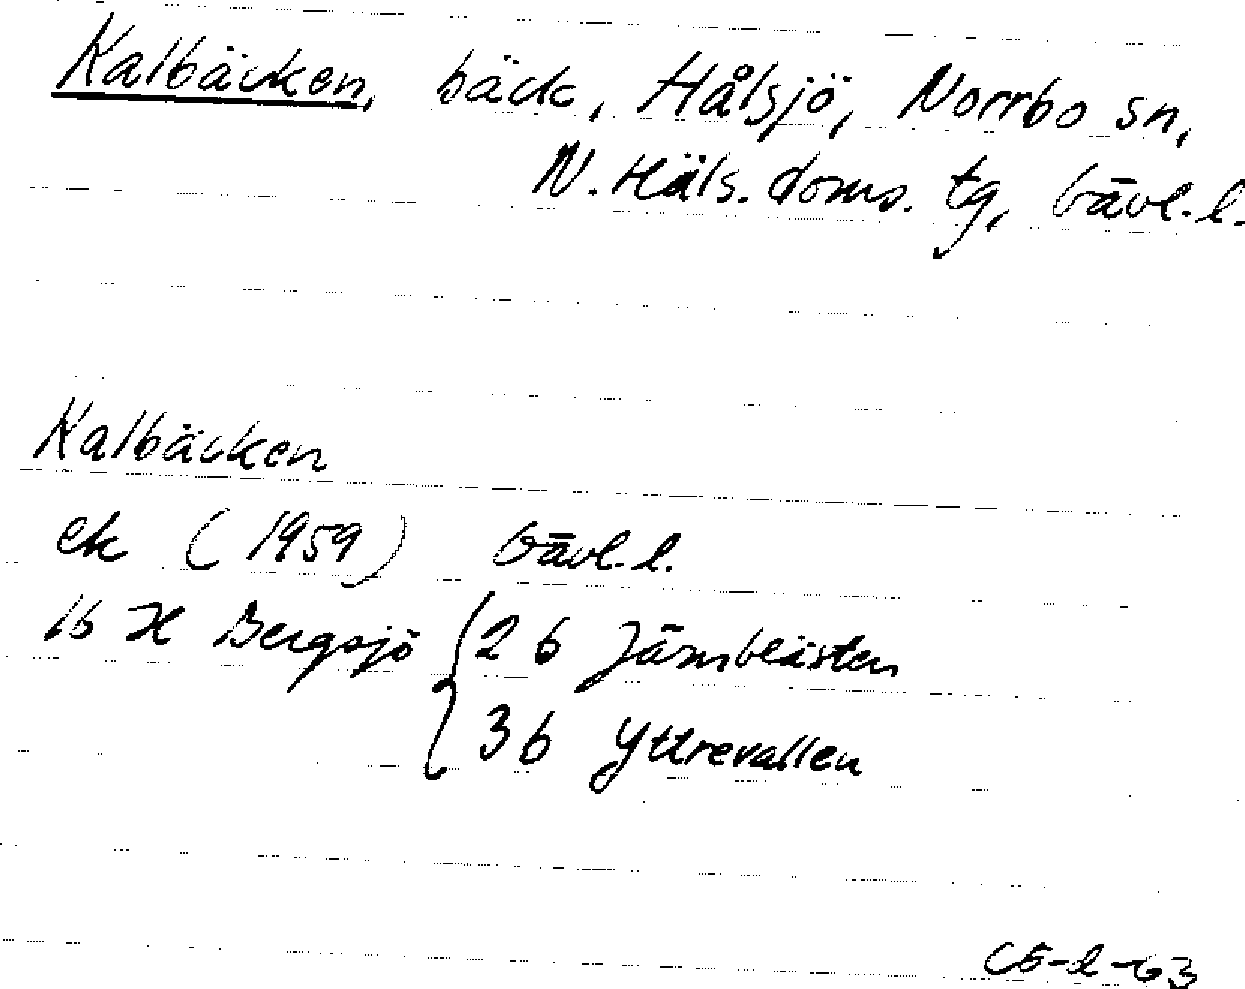 Kalbäcken, bäck, Hålsjö, Norrbo sn,
N. Häls. doms. tg, Gävl. l.
Kalbäcken
ek (1959) Gävl. l.
16 H Bergsjö 2 b Järnblästen
3 b Yttrevallen